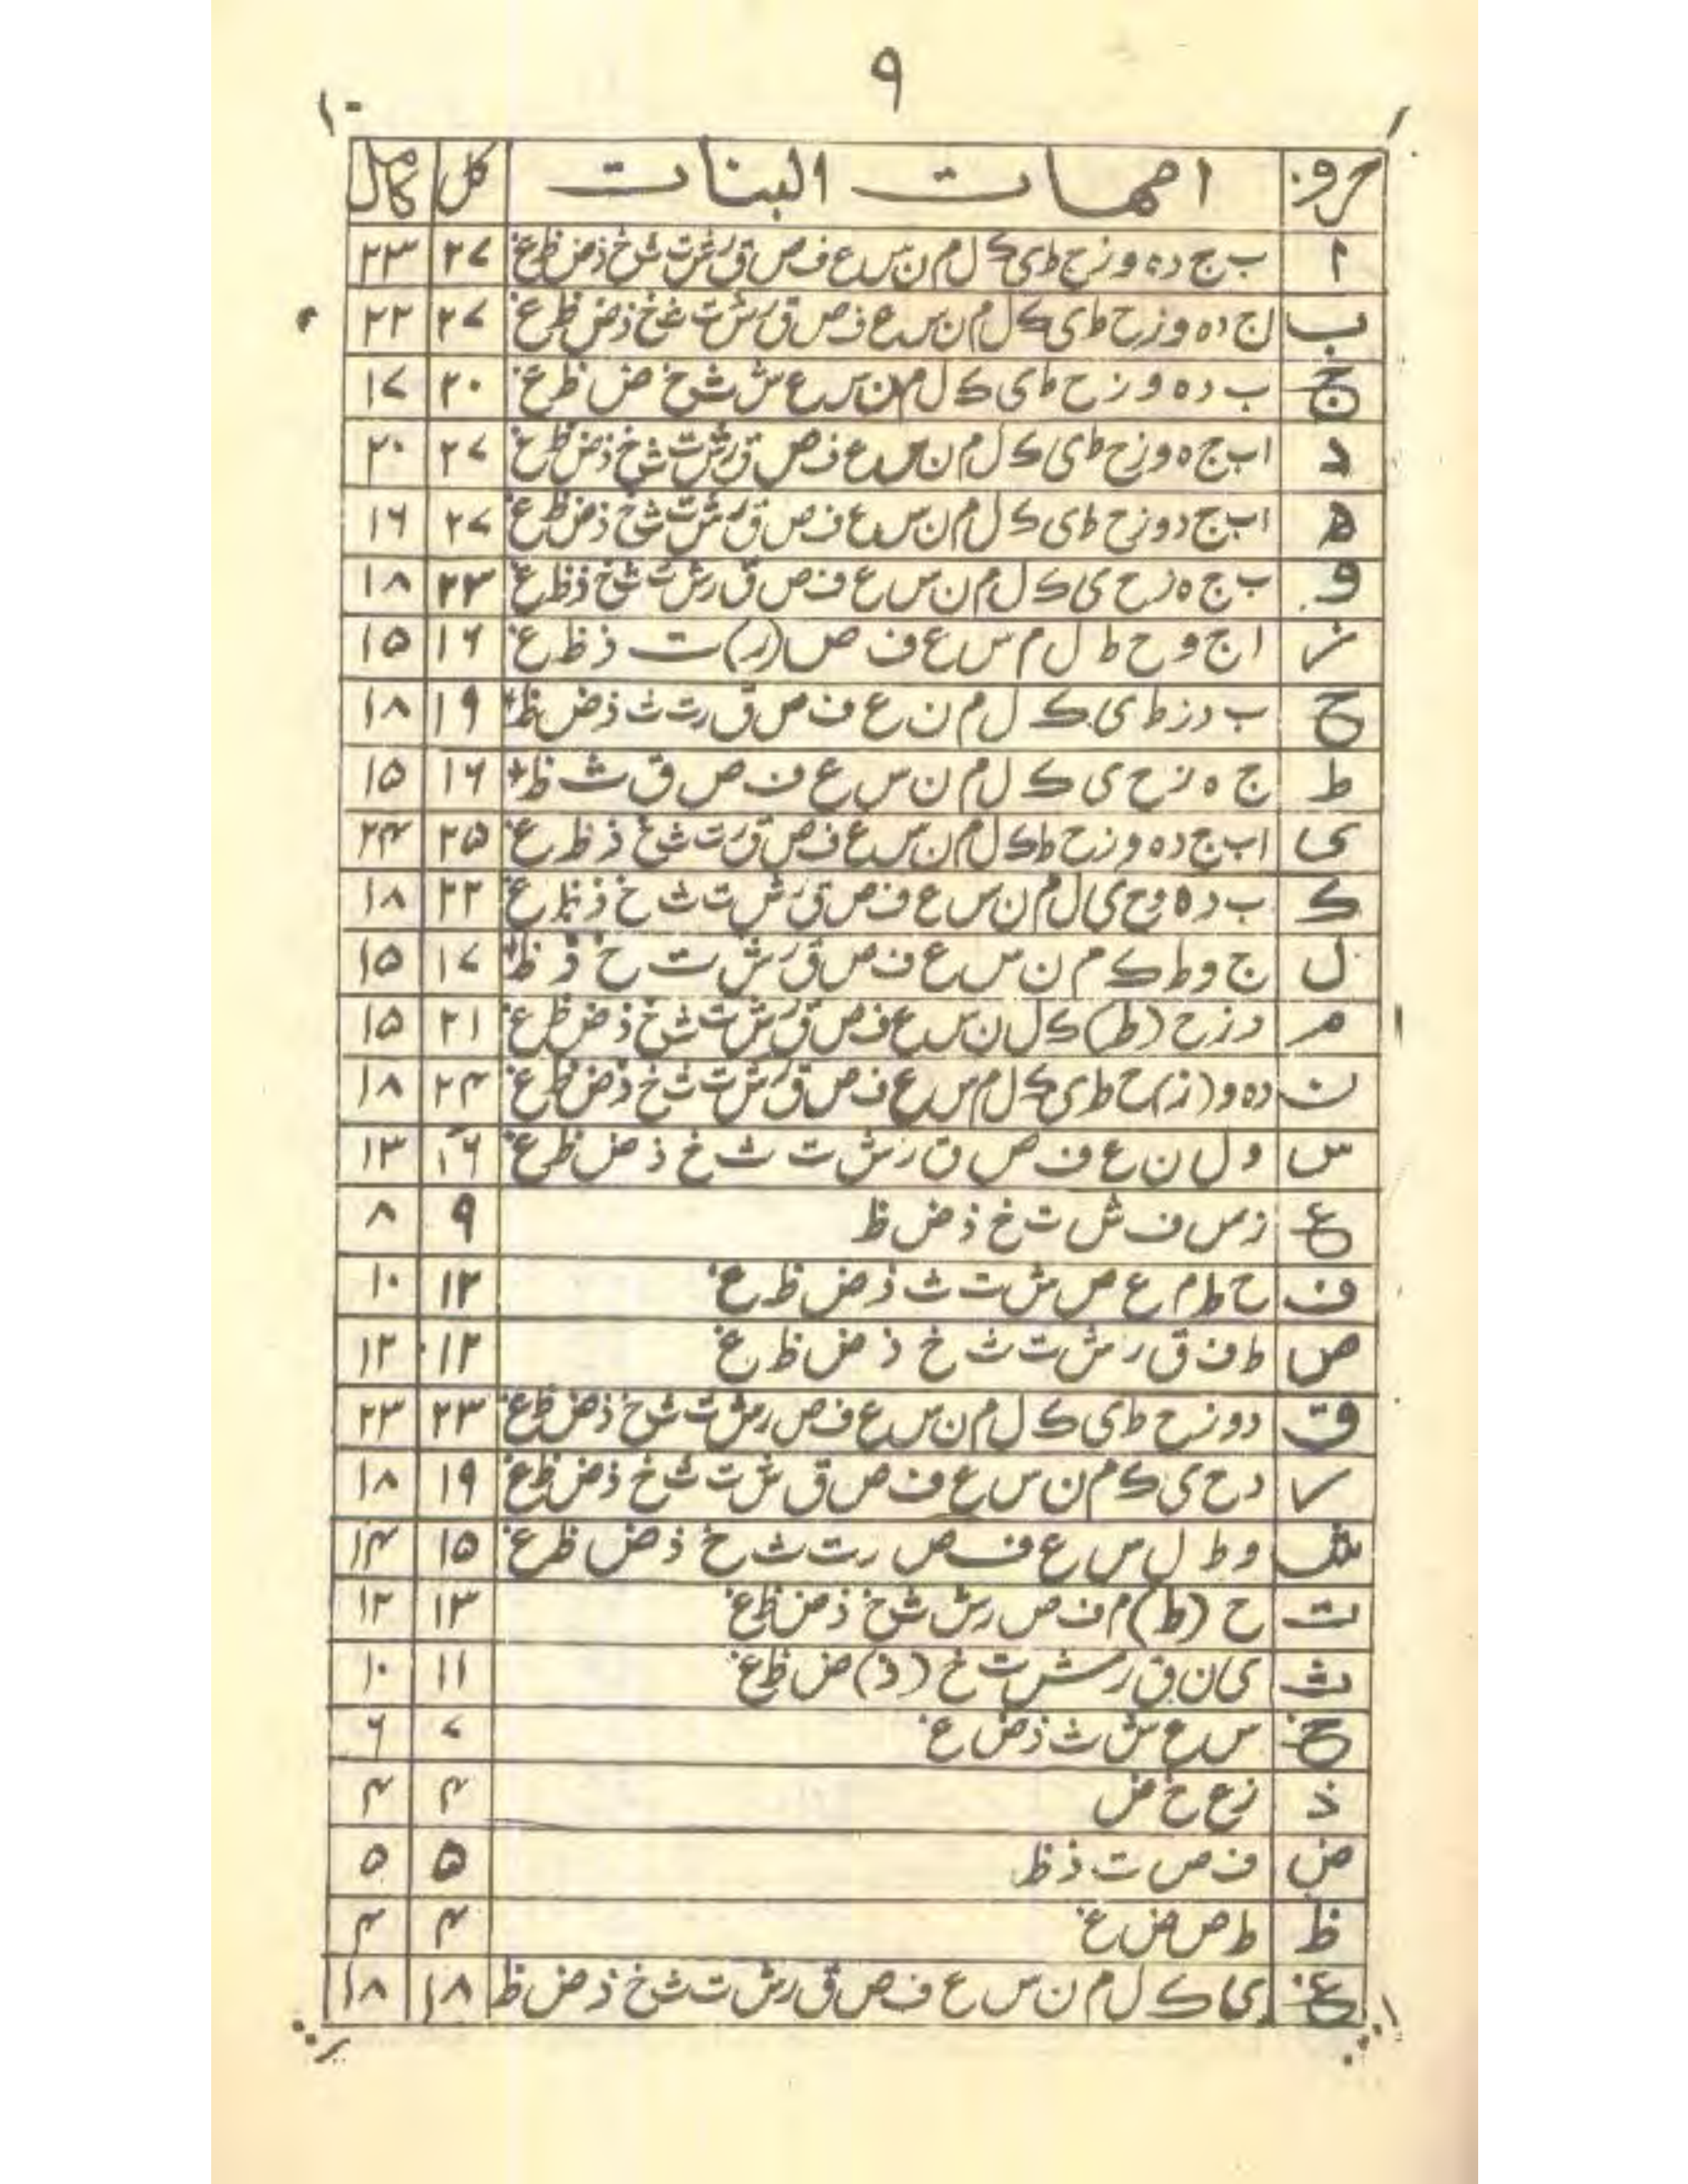 ۹
حروف امهات البنات کل کامل
ا ب ج د ه و ز ح ط ی ک ل م ن س ع ف ص ق ر ش ت ث خ ذ ض ظ غ ۲۷ ۲۳
ب ا ج د ه و ز ح ط ی ک ل م ن س ع ف ص ق ر ش ت ث خ ذ ض ظ غ ۲۷ ۲۲
ج ب د ه و ز ح ط ی ک ل م ن س ع ش ث خ ض ظ غ ۲۰ ۱۷
د ا ب ج ه و ز ح ط ی ک ل م ن س ع ف ص ق ر ش ت ث خ ذ ض ظ غ ۲۷ ۲۰
ه ا ب ج د و ز ح ط ی ک ل م ن س ع ف ص ق ر ش ت ث خ ذ ض ظ غ ۲۷ ۱۶
و ب ج ه ز ح ی ک ل م ن س ع ف ص ق ر ش ت ث خ ذ ظ غ ۲۳ ۱۸
ز ا ج و ح ط ل م س ع ف ص (ر) ت ذ ظ غ ۱۶ ۱۵
ح ب د ز ط ی ک ل م ن ع ف ص ق ر ت ث ذ ض ظ ۱۹ ۱۸
ط ج ه ز ح ی ک ل م ن س ع ف ص ق ث ظ ۱۶ ۱۵
ی ا ب ج د ه و ز ح ط ک ل م ن س ع ف ص ق ر ت ث خ ذ ظ غ ۲۵ ۲۴
ک ب د ه و ح ی ل م ن س ع ف ص ق ر ش ت ث خ ذ ظ غ ۲۲ ۱۸
ل ج و ط ک م ن س ع ف ص ق ر ش ت خ ذ ظ ۱۷ ۱۵
م د ز ح (ط) ک ل ن س ع ف ص ق ر ش ت ث خ ذ ض ظ غ ۲۱ ۱۵
ن د ه و (ز) ح ط ی ک ل م س ع ف ص ق ر ش ت ث خ ذ ض ظ غ ۲۴ ۱۸
س و ل ن ع ف ص ق ر ش ت ث خ ذ ض ظ غ ۱۶ ۱۳
ع ز س ف ش ت خ ذ ض ظ ۹ ۸
ف ح ط م ع ص ش ت ث ذ ض ظ غ ۱۲ ۱۰
ص ط ف ق ر ش ت ث خ ذ ض ظ غ ۱۲ ۱۲
ق د و ز ح ط ی ک ل م ن س ع ف ص ر ش ت ث خ ذ ض ظ غ ۲۳ ۲۳
ر د ح ی ک م ن س ع ف ص ق ش ت ث خ ذ ض ظ غ ۱۹ ۱۸
ش و ط ل س ع ف ص ر ت ث خ ذ ض ظ غ ۱۵ ۱۴
ت ح (ط) م ف ص ر ش ث خ ذ ض ظ غ ۱۳ ۱۲
ث ی ن ق ر ش ت خ (ذ) ض ظ غ ۱۱ ۱۰
خ س ع ش ث ذ ض غ ۷ ۶
ذ ز ع خ ض ۴ ۴
ض ف ص ت ذ ظ ۵ ۵
ظ ط ص ض غ ۴ ۴
غ ی ک ل م ن س ع ف ص ق ر ش ت ث خ ذ ض ظ ۱۸ ۱۸